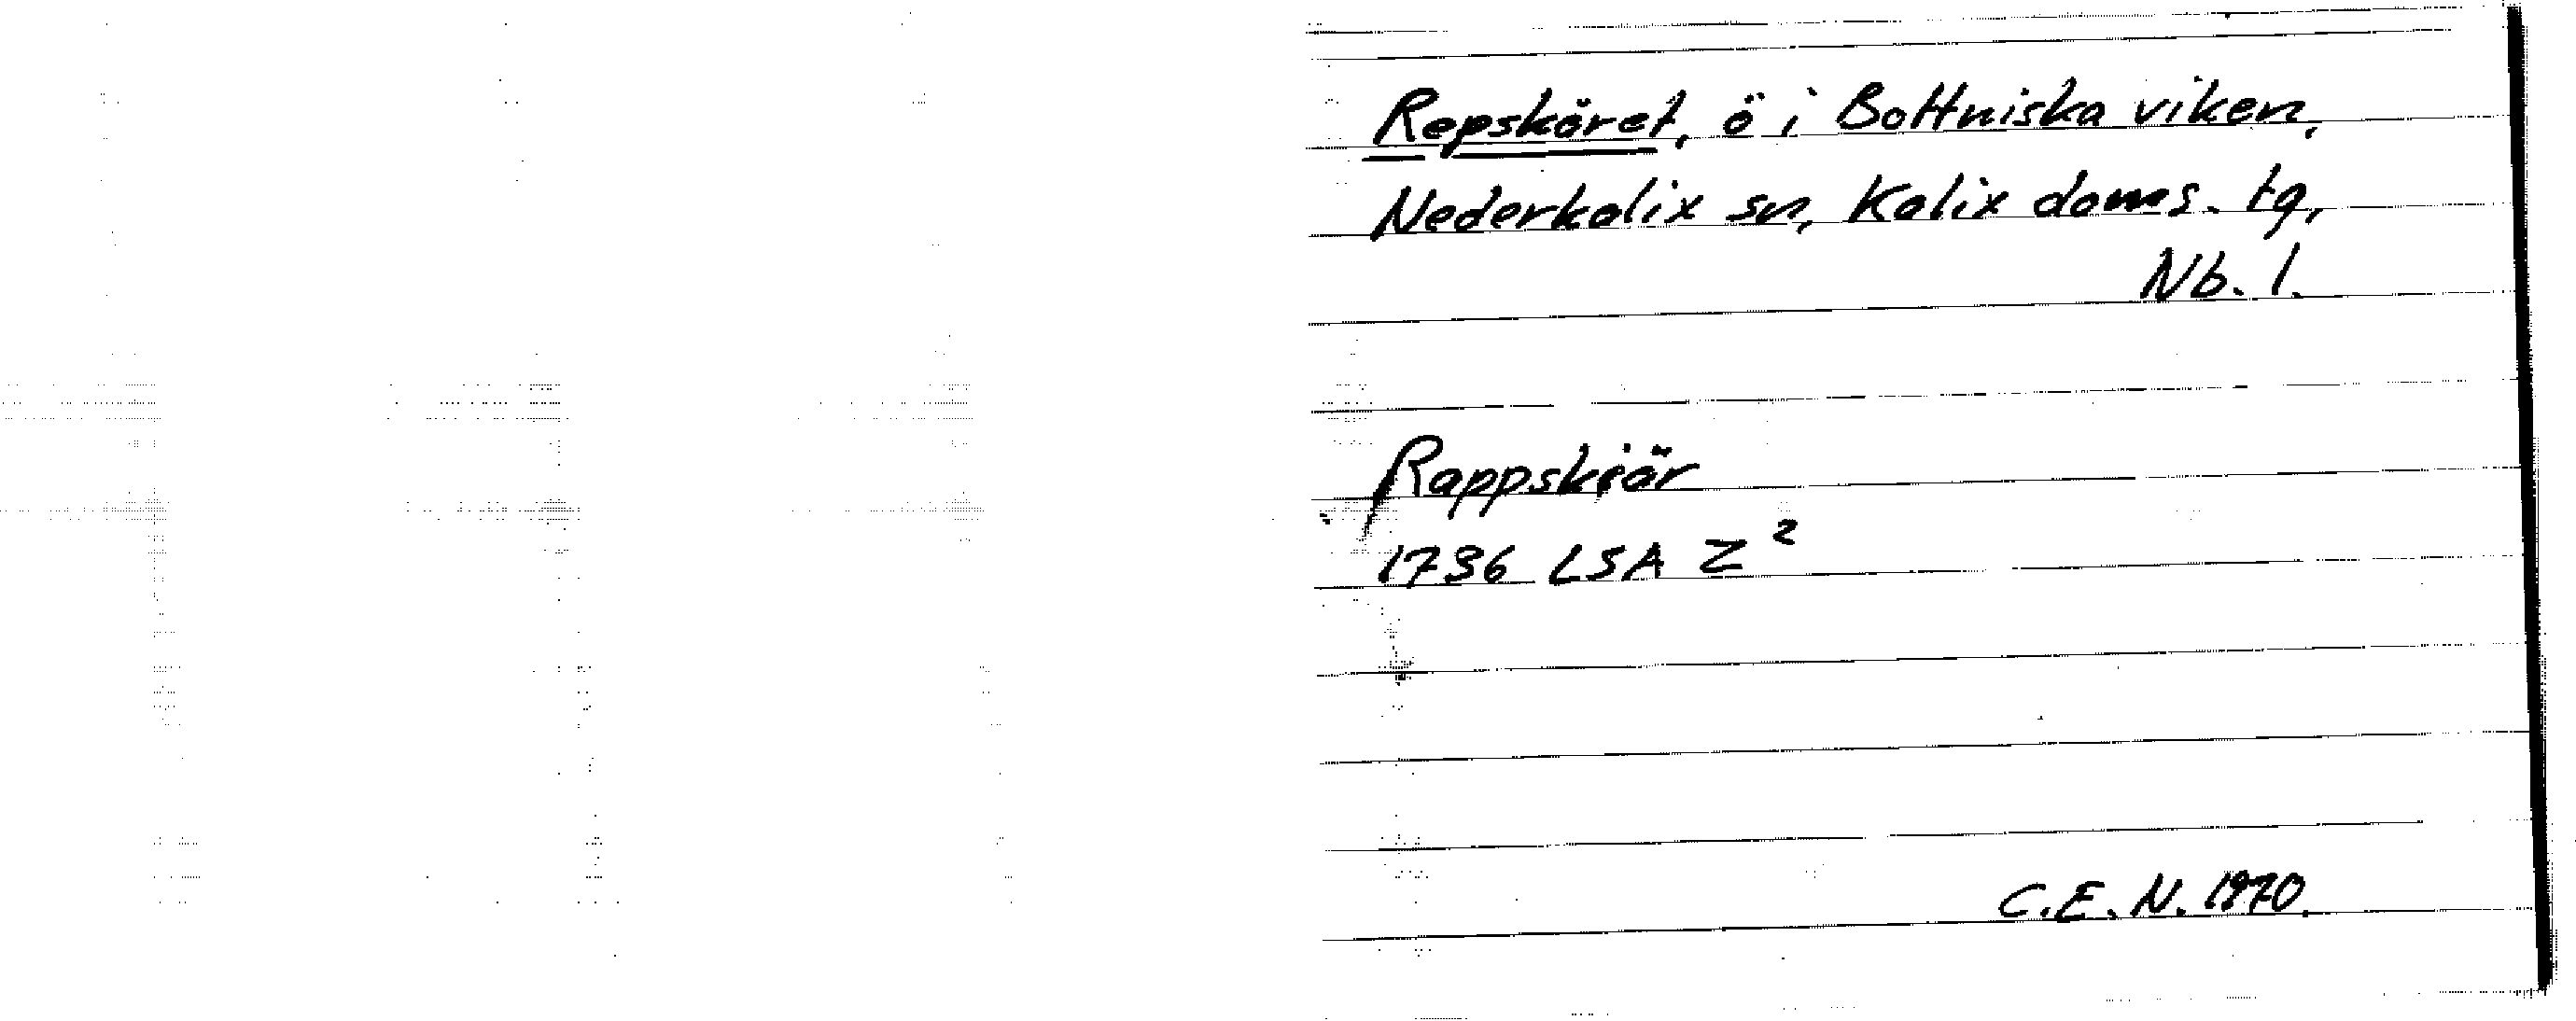 Repskäret, ö i Bottniska viken,
Nederkalix sn, Kalix doms. tg,
Nb. l.
Rappskiär
1736 LSA Z²
C.E.N. 1970.